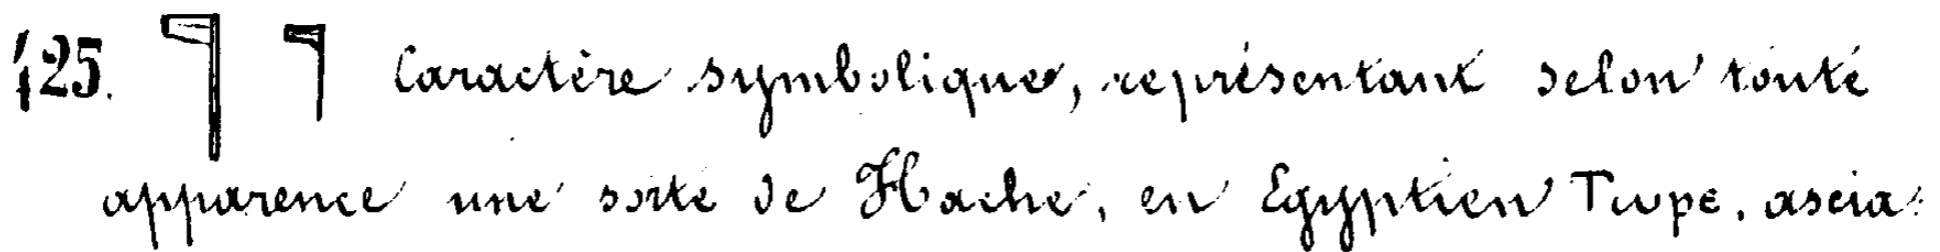 425. 𓊹 𓊹 Caractère symbolique, représentant selon toute
apparence une sorte de Hache, en Egyptien Ⲧⲱⲣⲉ, ascia: